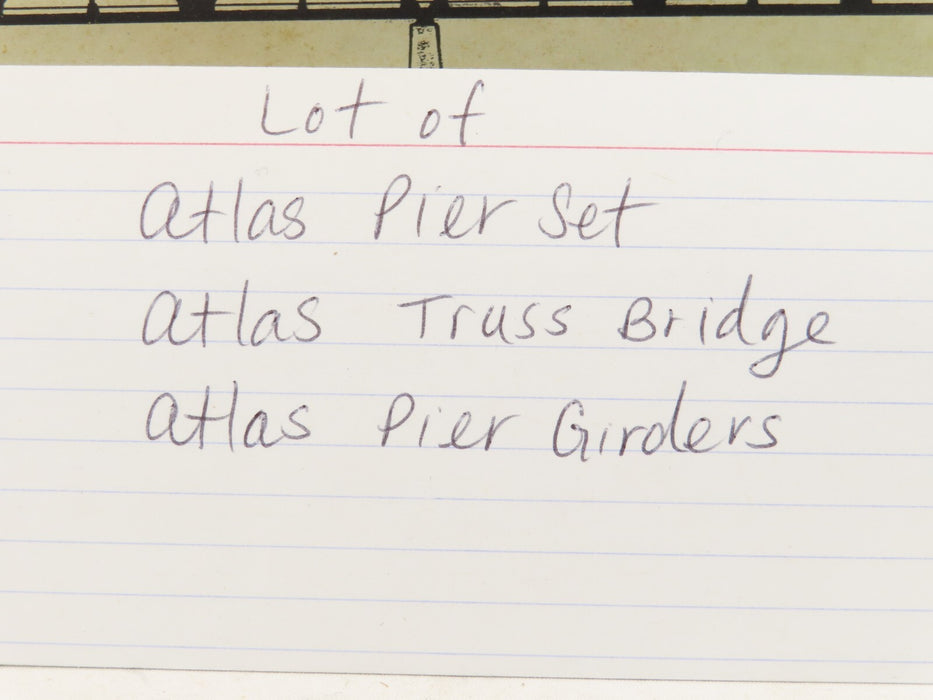 Lot of
Atlas Pier Set
Atlas Truss Bridge
Atlas Pier Girders